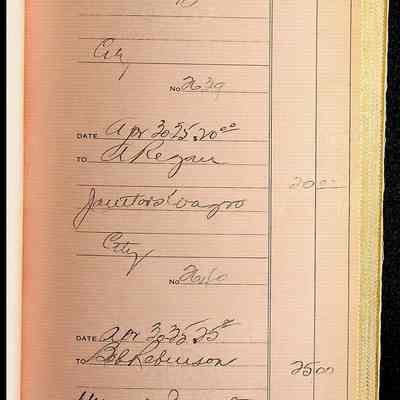 City
No 2639
DATE Apr 30 25. 20 00
TO A Regan
Janitors Wages
20 00
City
No 2640
DATE Apr 30 25. 25
TO Bob Robinson
25 00